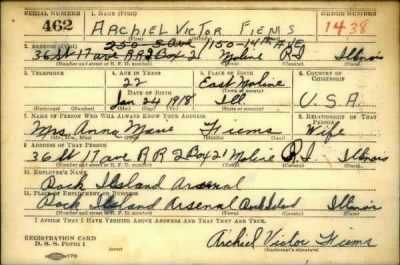 SERIAL NUMBER 1. NAME (Print) ORDER NUMBER
462 ARCHIEL VICTOR FIEMS 1438
(First) (Middle) (Last)
250-5 Ave 1150-14th AVE
2. ADDRESS (Print)
36 St 17 ave RR2 Box 2 Moline R.I. Illinois
(Number and street or R. F. D. number) (Town) (County) (State)
3. TELEPHONE 4. AGE IN YEARS 5. PLACE OF BIRTH 6. COUNTRY OF CITIZENSHIP
22 East Moline
DATE OF BIRTH (Town or county)
Jan 24 1918 Ill. U.S.A.
(Exchange) (Number) (Mo.) (Day) (Yr.) (State or country)
7. NAME OF PERSON WHO WILL ALWAYS KNOW YOUR ADDRESS 8. RELATIONSHIP OF THAT PERSON
Mrs. Anna Marie Fiems Wife
(Mr., Mrs., Miss) (First) (Middle) (Last)
9. ADDRESS OF THAT PERSON
36 St 17 ave RR 2 Box 21 Moline R.I. Illinois
(Number and street or R. F. D. number) (Town) (County) (State)
10. EMPLOYER'S NAME
Rock Island Arsenal
11. PLACE OF EMPLOYMENT OR BUSINESS
Rock Island Arsenal Rock Island Illinois
(Number and street or R. F. D. number) (Town) (County) (State)
I AFFIRM THAT I HAVE VERIFIED ABOVE ANSWERS AND THAT THEY ARE TRUE.
REGISTRATION CARD
D. S. S. Form 1 Archiel Victor Fiems
(over) (Registrant's signature)